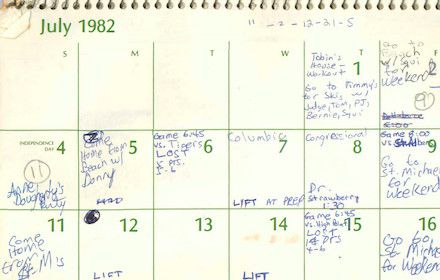 July 1982
11 - 2 - 12 - 21 - 5
S M T W T F
Tobin's
House -
Workout
1
Go to Timmy's
for Skis w/
Judge, Tom, PJ,
Bernie, Squi
Go to
Beach
w/ Squi
for
weekend
2
INDEPENDENCE
DAY
4
11
Anne
Dougherty's
Party
5
Come
Home From
Beach w/
Donny
Game 6:45
vs. Tigers
6
LOST
pts.
Columbia
7
LIFT AT PREP
Congressional
8
Dr.
Strawberry
1:30
Game 8:00
vs.
9
Go to
St. Michaels
for
weekend
11
Come
Home
From
St. M's
12
LIFT
13
14
LIFT
Game 6:45
15
LOST
pts
4-6
16
Go to
St. Michaels
for Weekend